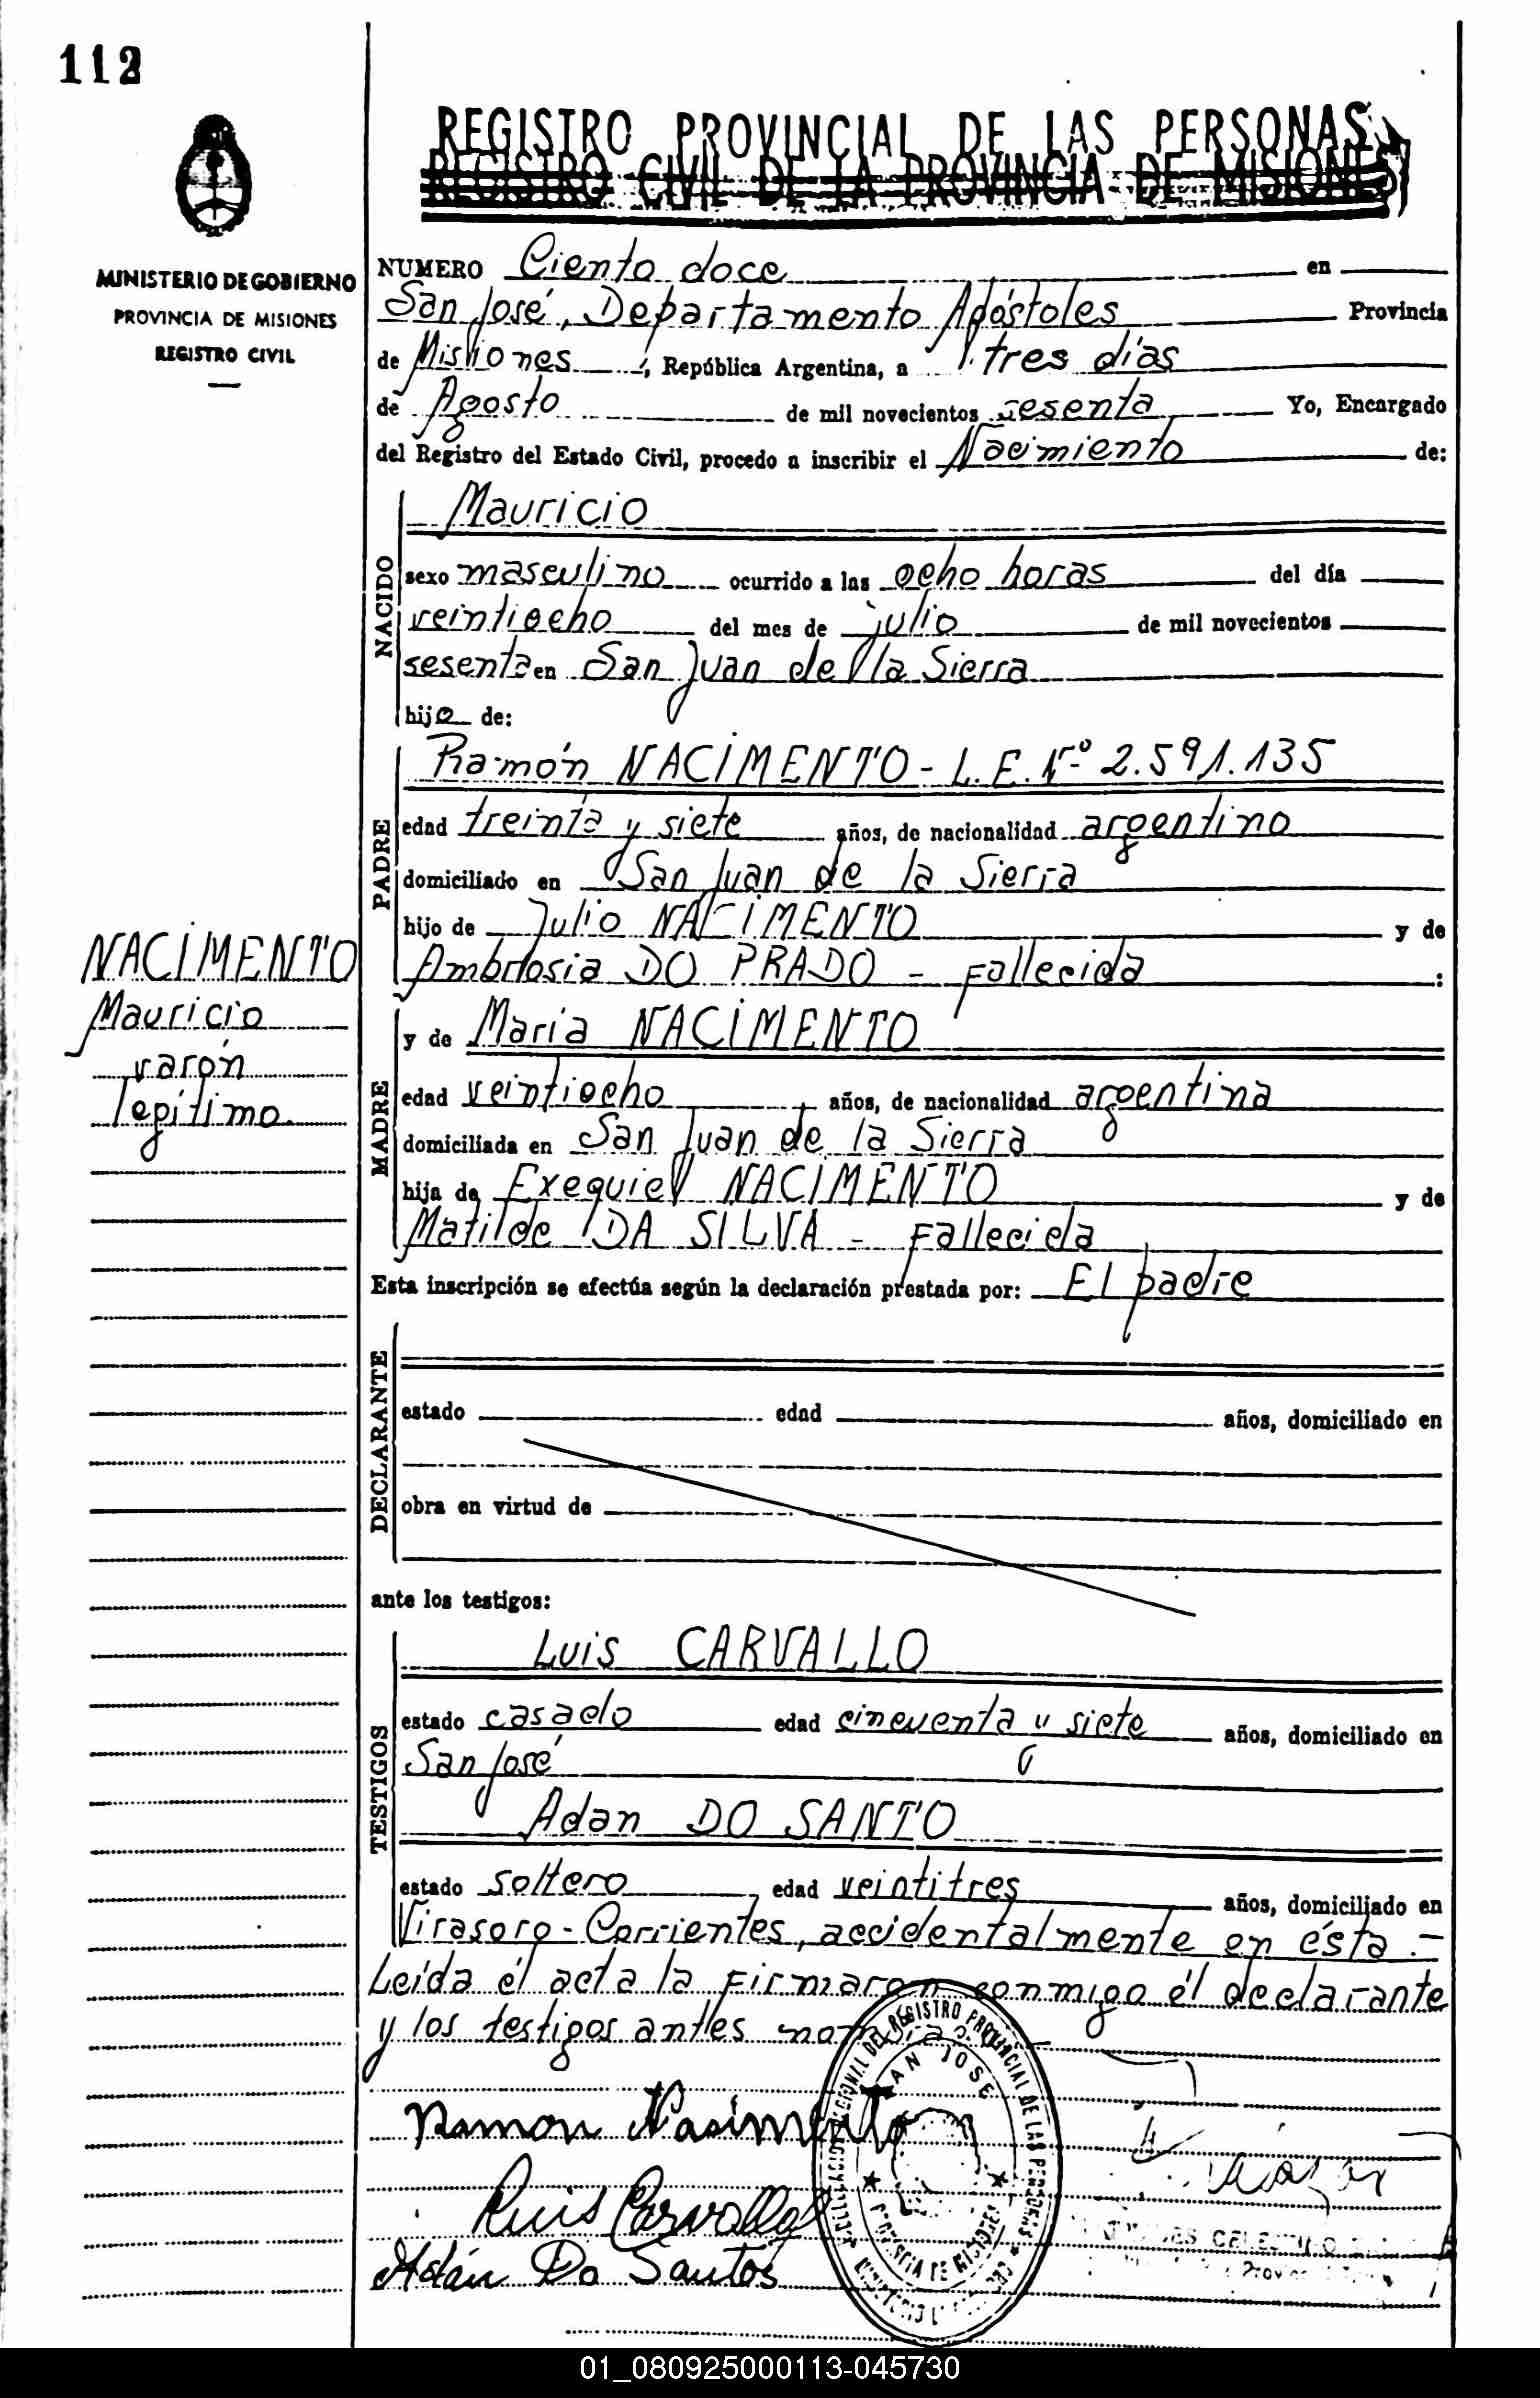 112
REGISTRO PROVINCIAL DE LAS PERSONAS
REGISTRO CIVIL DE LA PROVINCIA DE MISIONES
MINISTERIO DE GOBIERNO
PROVINCIA DE MISIONES
REGISTRO CIVIL
NUMERO Ciento doce en
San José, Departamento Apóstoles Provincia
de Misiones, República Argentina, a tres días
de Agosto de mil novecientos sesenta Yo, Encargado
del Registro del Estado Civil, procedo a inscribir el Nacimiento de:
NACIDO
Mauricio
sexo masculino ocurrido a las ocho horas del día
veintiocho del mes de julio de mil novecientos
sesenta en San Juan de la Sierra
hijo de:
PADRE
Ramón NACIMENTO - L.E. Nº 2.591.135
edad treinta y siete años, de nacionalidad argentino
domiciliado en San Juan de la Sierra
hijo de Julio NACIMENTO y de
Ambrosia DO PRADO - Fallecida :
NACIMENTO
Mauricio
varón
legítimo.
MADRE
y de Maria NACIMENTO
edad veintiocho años, de nacionalidad argentina
domiciliada en San Juan de la Sierra
hija de Exequiel NACIMENTO y de
Matilde DA SILVA - Fallecida
Esta inscripción se efectúa según la declaración prestada por: El padre
DECLARANTE
estado edad años, domiciliado en
obra en virtud de
ante los testigos:
TESTIGOS
Luis CARVALLO
estado casado edad cincuenta y siete años, domiciliado en
San José
Adan DO SANTO
estado soltero edad veintitres años, domiciliado en
Virasoro - Corrientes, accidentalmente en ésta.-
Leída él acta la firmaron conmigo él declarante
y los testigos antes
Ramon Nasimento
Luis Carvallo
Adán Do Santos
DEL REGISTRO PROVINCIAL DE LAS PERSONAS
SAN JOSE
PROVINCIA DE MISIONES
01_080925000113-045730